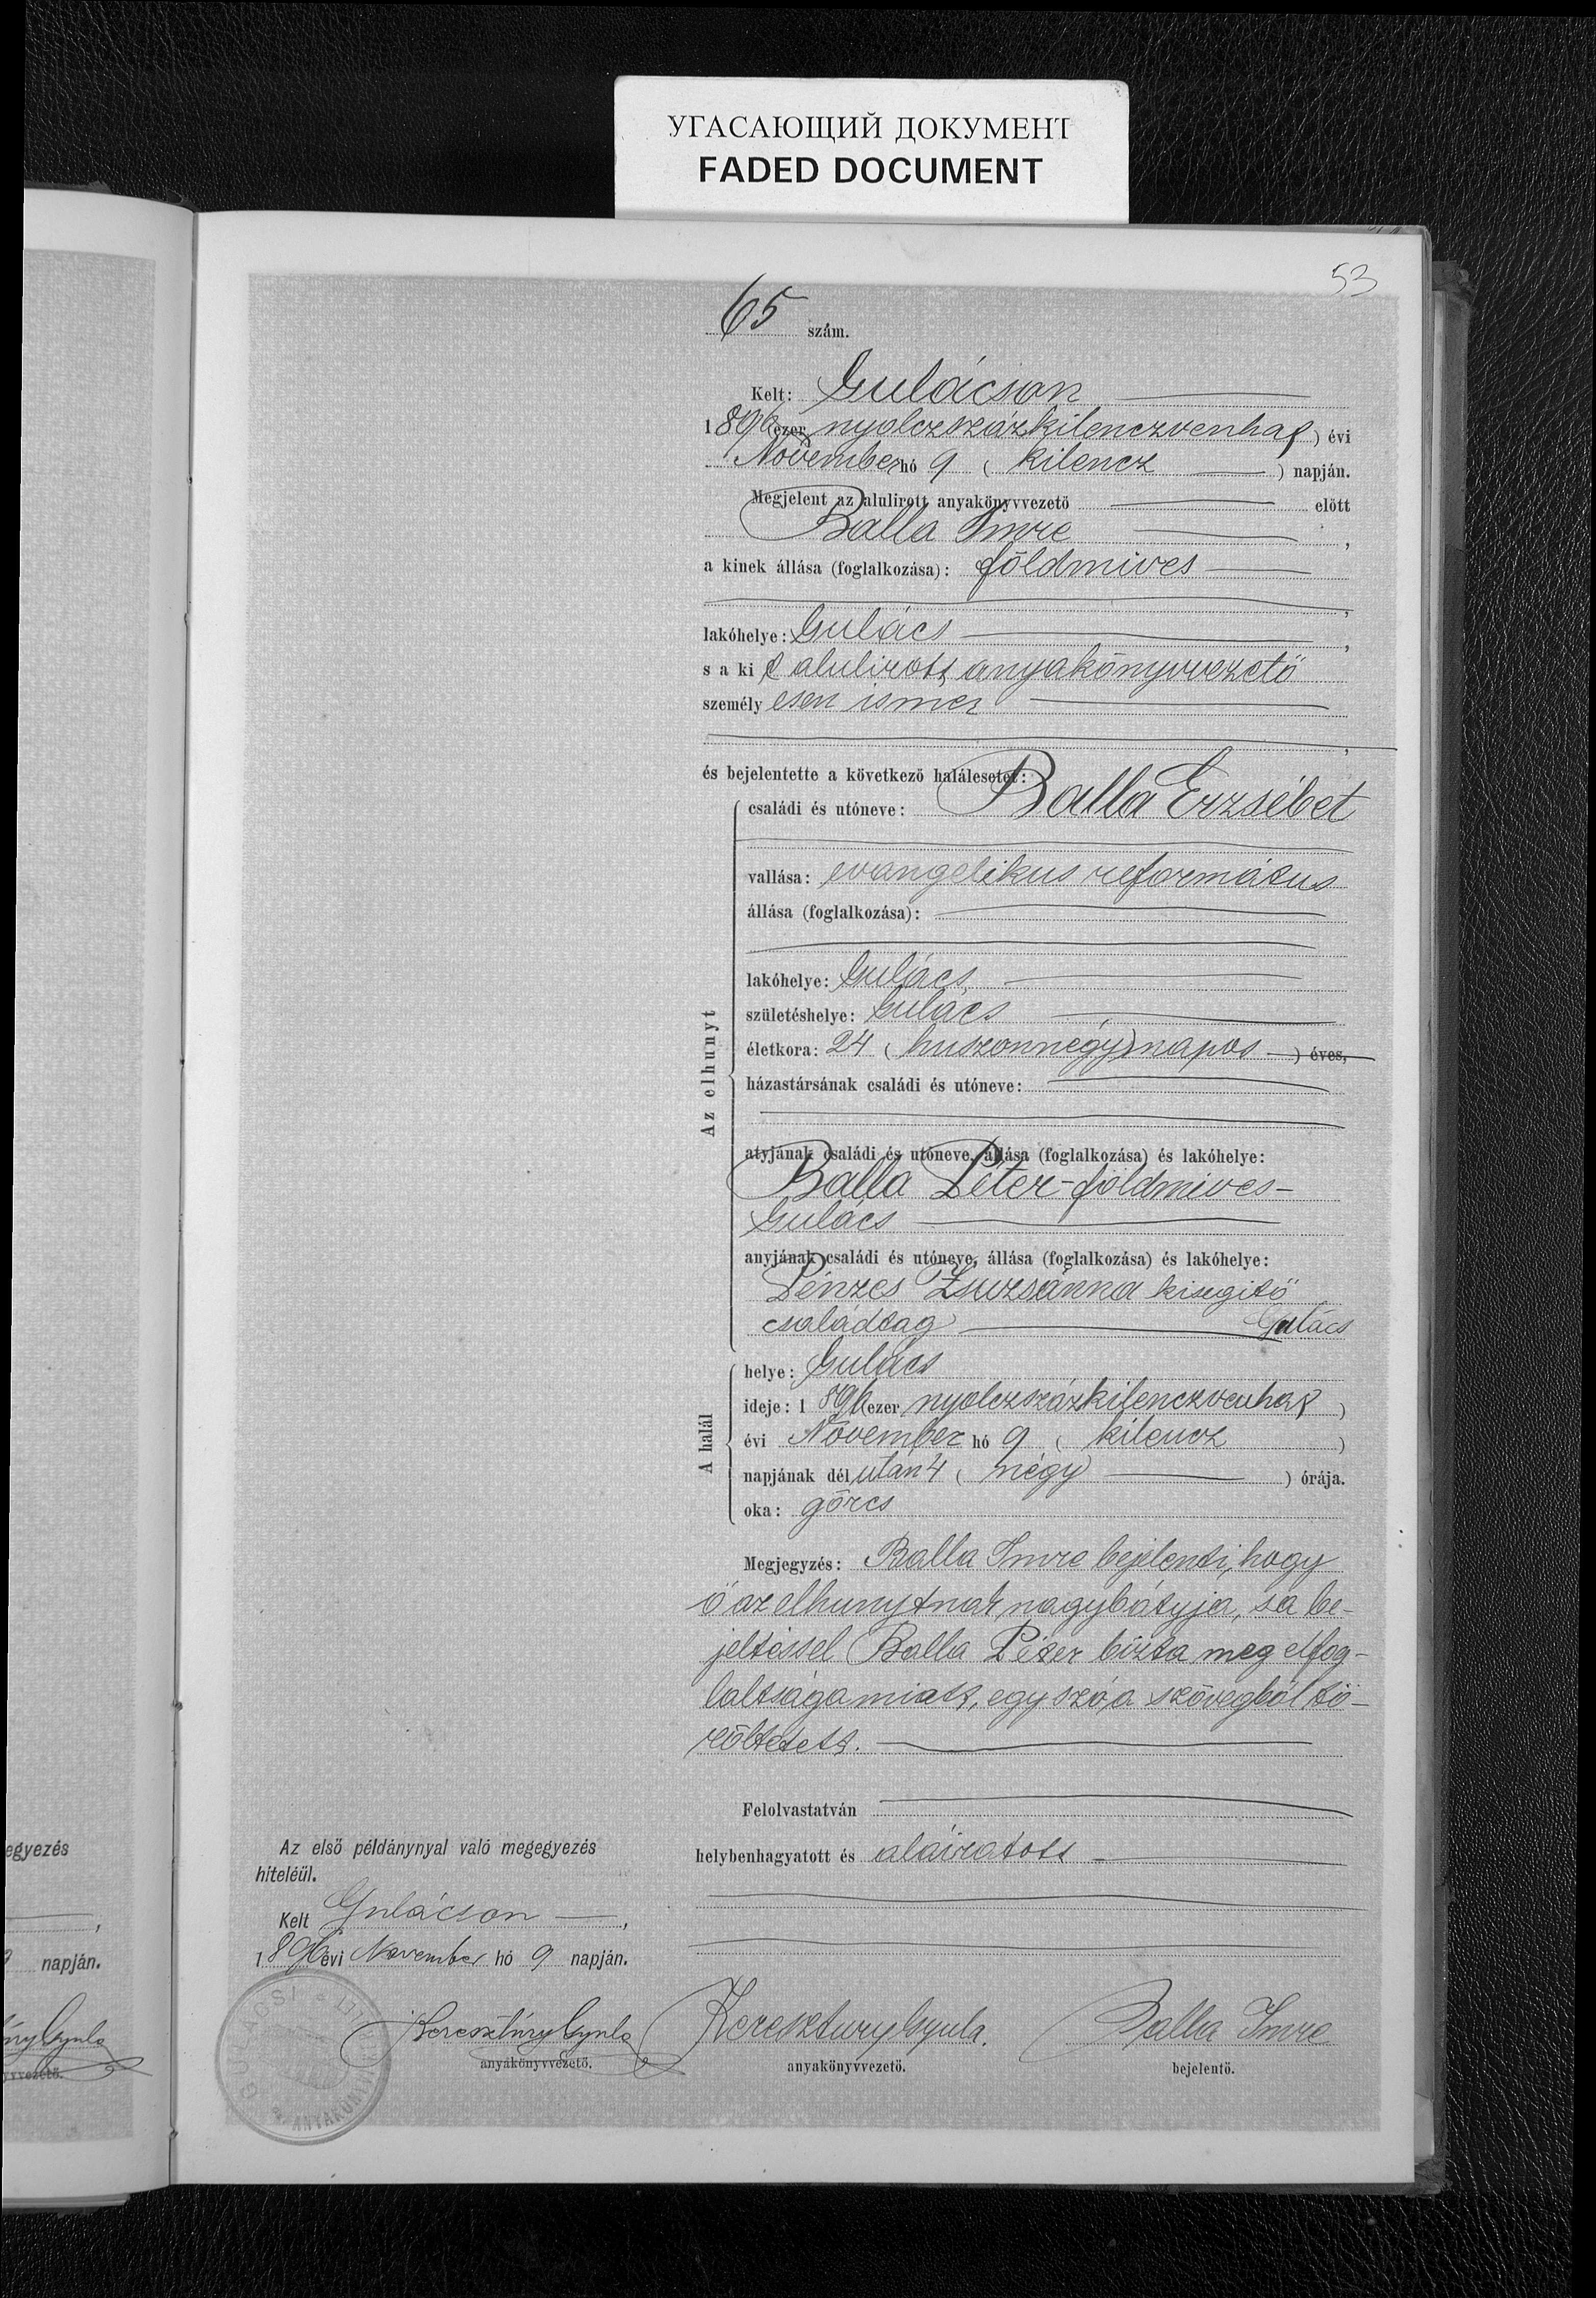 УГАСАЮЩИЙ ДОКУМЕНТ
FADED DOCUMENT
53
65 szám.
Kelt: Gulácson
1896 (ezer nyolczszázkilenczvenhat) évi
November hó 9 (kilencz) napján.
Megjelent az alulirott anyakönyvvezető előtt
Balla Imre,
a kinek állása (foglalkozása): földmives
,
lakóhelye: Gulács,
s a kit alulirott anyakönyvvezető
személyesen ismer
,
és bejelentette a következő halálesetet:
Az elhunyt
családi és utóneve: Balla Erzsébet
vallása: evangelikus református
állása (foglalkozása):
lakóhelye: Gulács,
születéshelye: Gulács
életkora: 24 (huszonnégy) napos ) éves,
házastársának családi és utóneve:
atyjának családi és utóneve, állása (foglalkozása) és lakóhelye:
Balla Péter - földmives -
Gulács
anyjának családi és utóneve, állása (foglalkozása) és lakóhelye:
Pénzes Zsuzsánna kisegitő
családtag Gulács
A halál
helye: Gulács
ideje: 1896 (ezer nyolczszázkilenczvenhat)
évi November hó 9 (kilencz)
napjának délután 4 (négy) órája.
oka: görcs
Megjegyzés: Balla Imre bejelenti, hogy
ő az elhunytnak nagybátyja, s a be-
jeltéssel Balla Péter bizta meg elfog-
laltsága miatt, egy szó a szövegből tö-
röltetett.
Felolvastatván
helybenhagyatott és aláiratott
Az első példánynyal való megegyezés
hiteléül.
Kelt Gulácson,
1896 évi November hó 9 napján.
Keresztúry Gyula
anyakönyvvezető.
Keresztury Gyula.
anyakönyvvezető.
Balla Imre
bejelentő.
egyezés
,
9 napján.